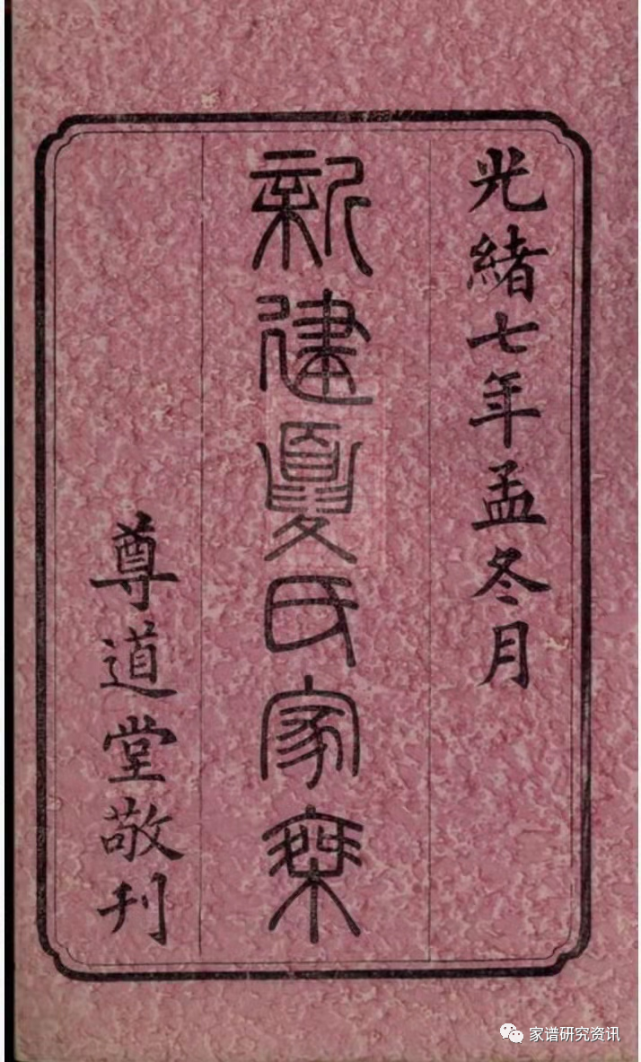 光緒七年孟冬月
新建夏氏家乘
尊道堂敬刊
家谱研究资讯